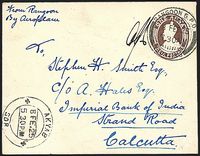 From Rangoon
By Aeroplane
RANGOON G.P.O.
To,
Stephen H. Smith Esq.
c/o A. Hales Esq.
Imperial Bank of India
Strand Road
Calcutta
AKYAB
8 FEB 29
5.30 PM
SDR